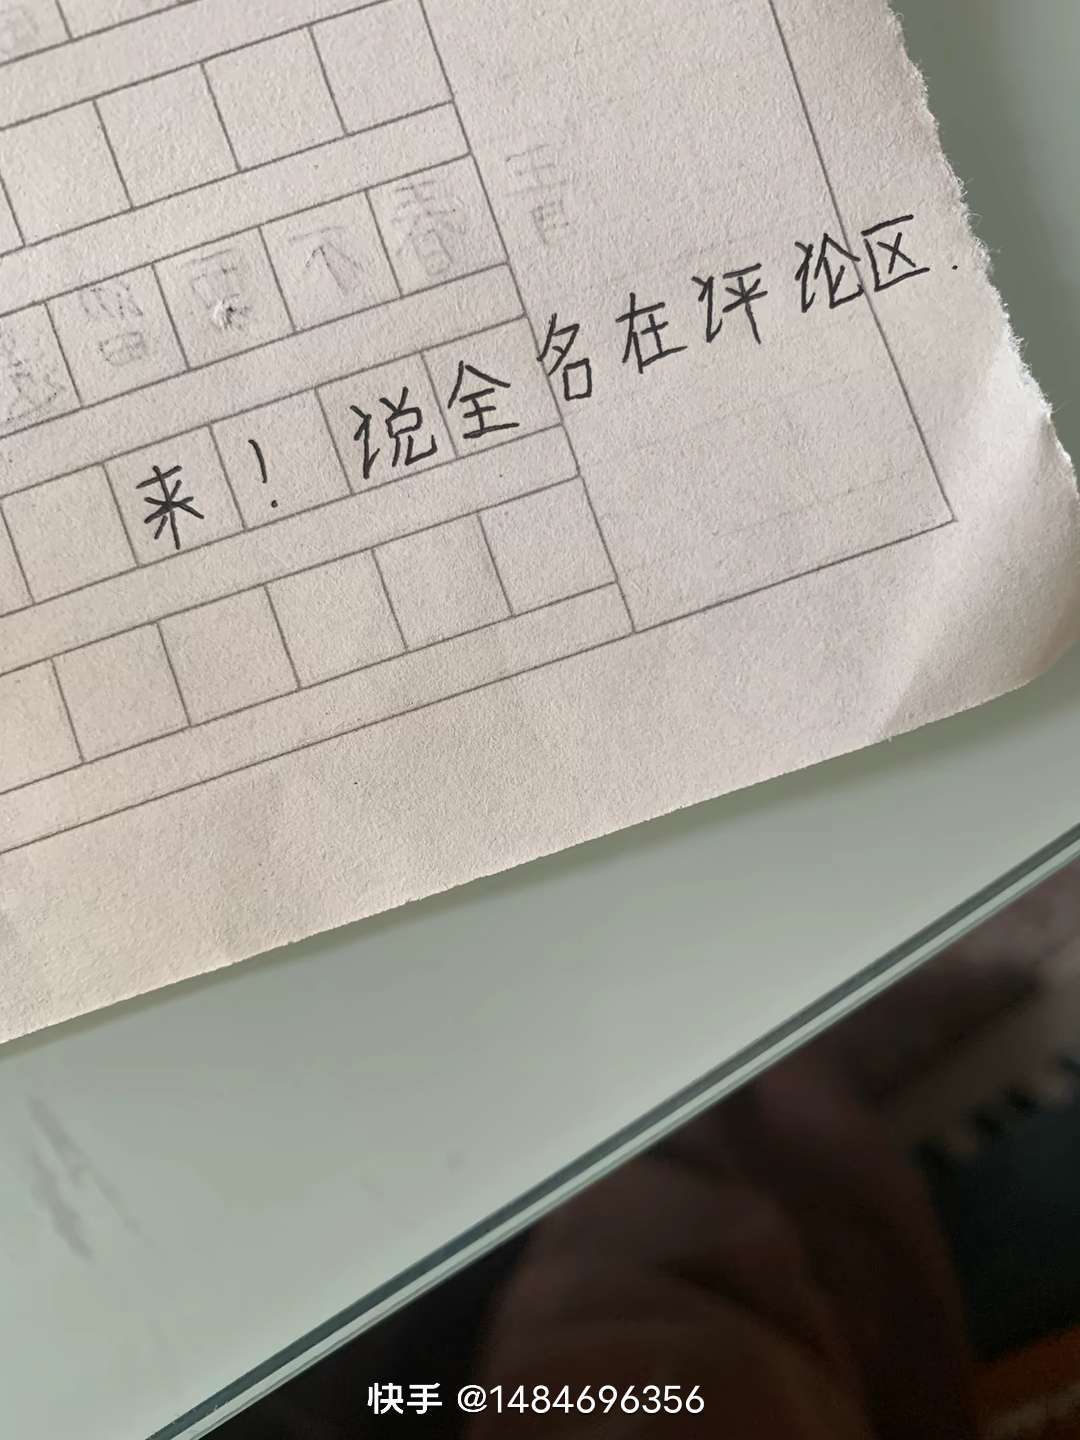 来！说全名在评论区.
快手 @1484696356